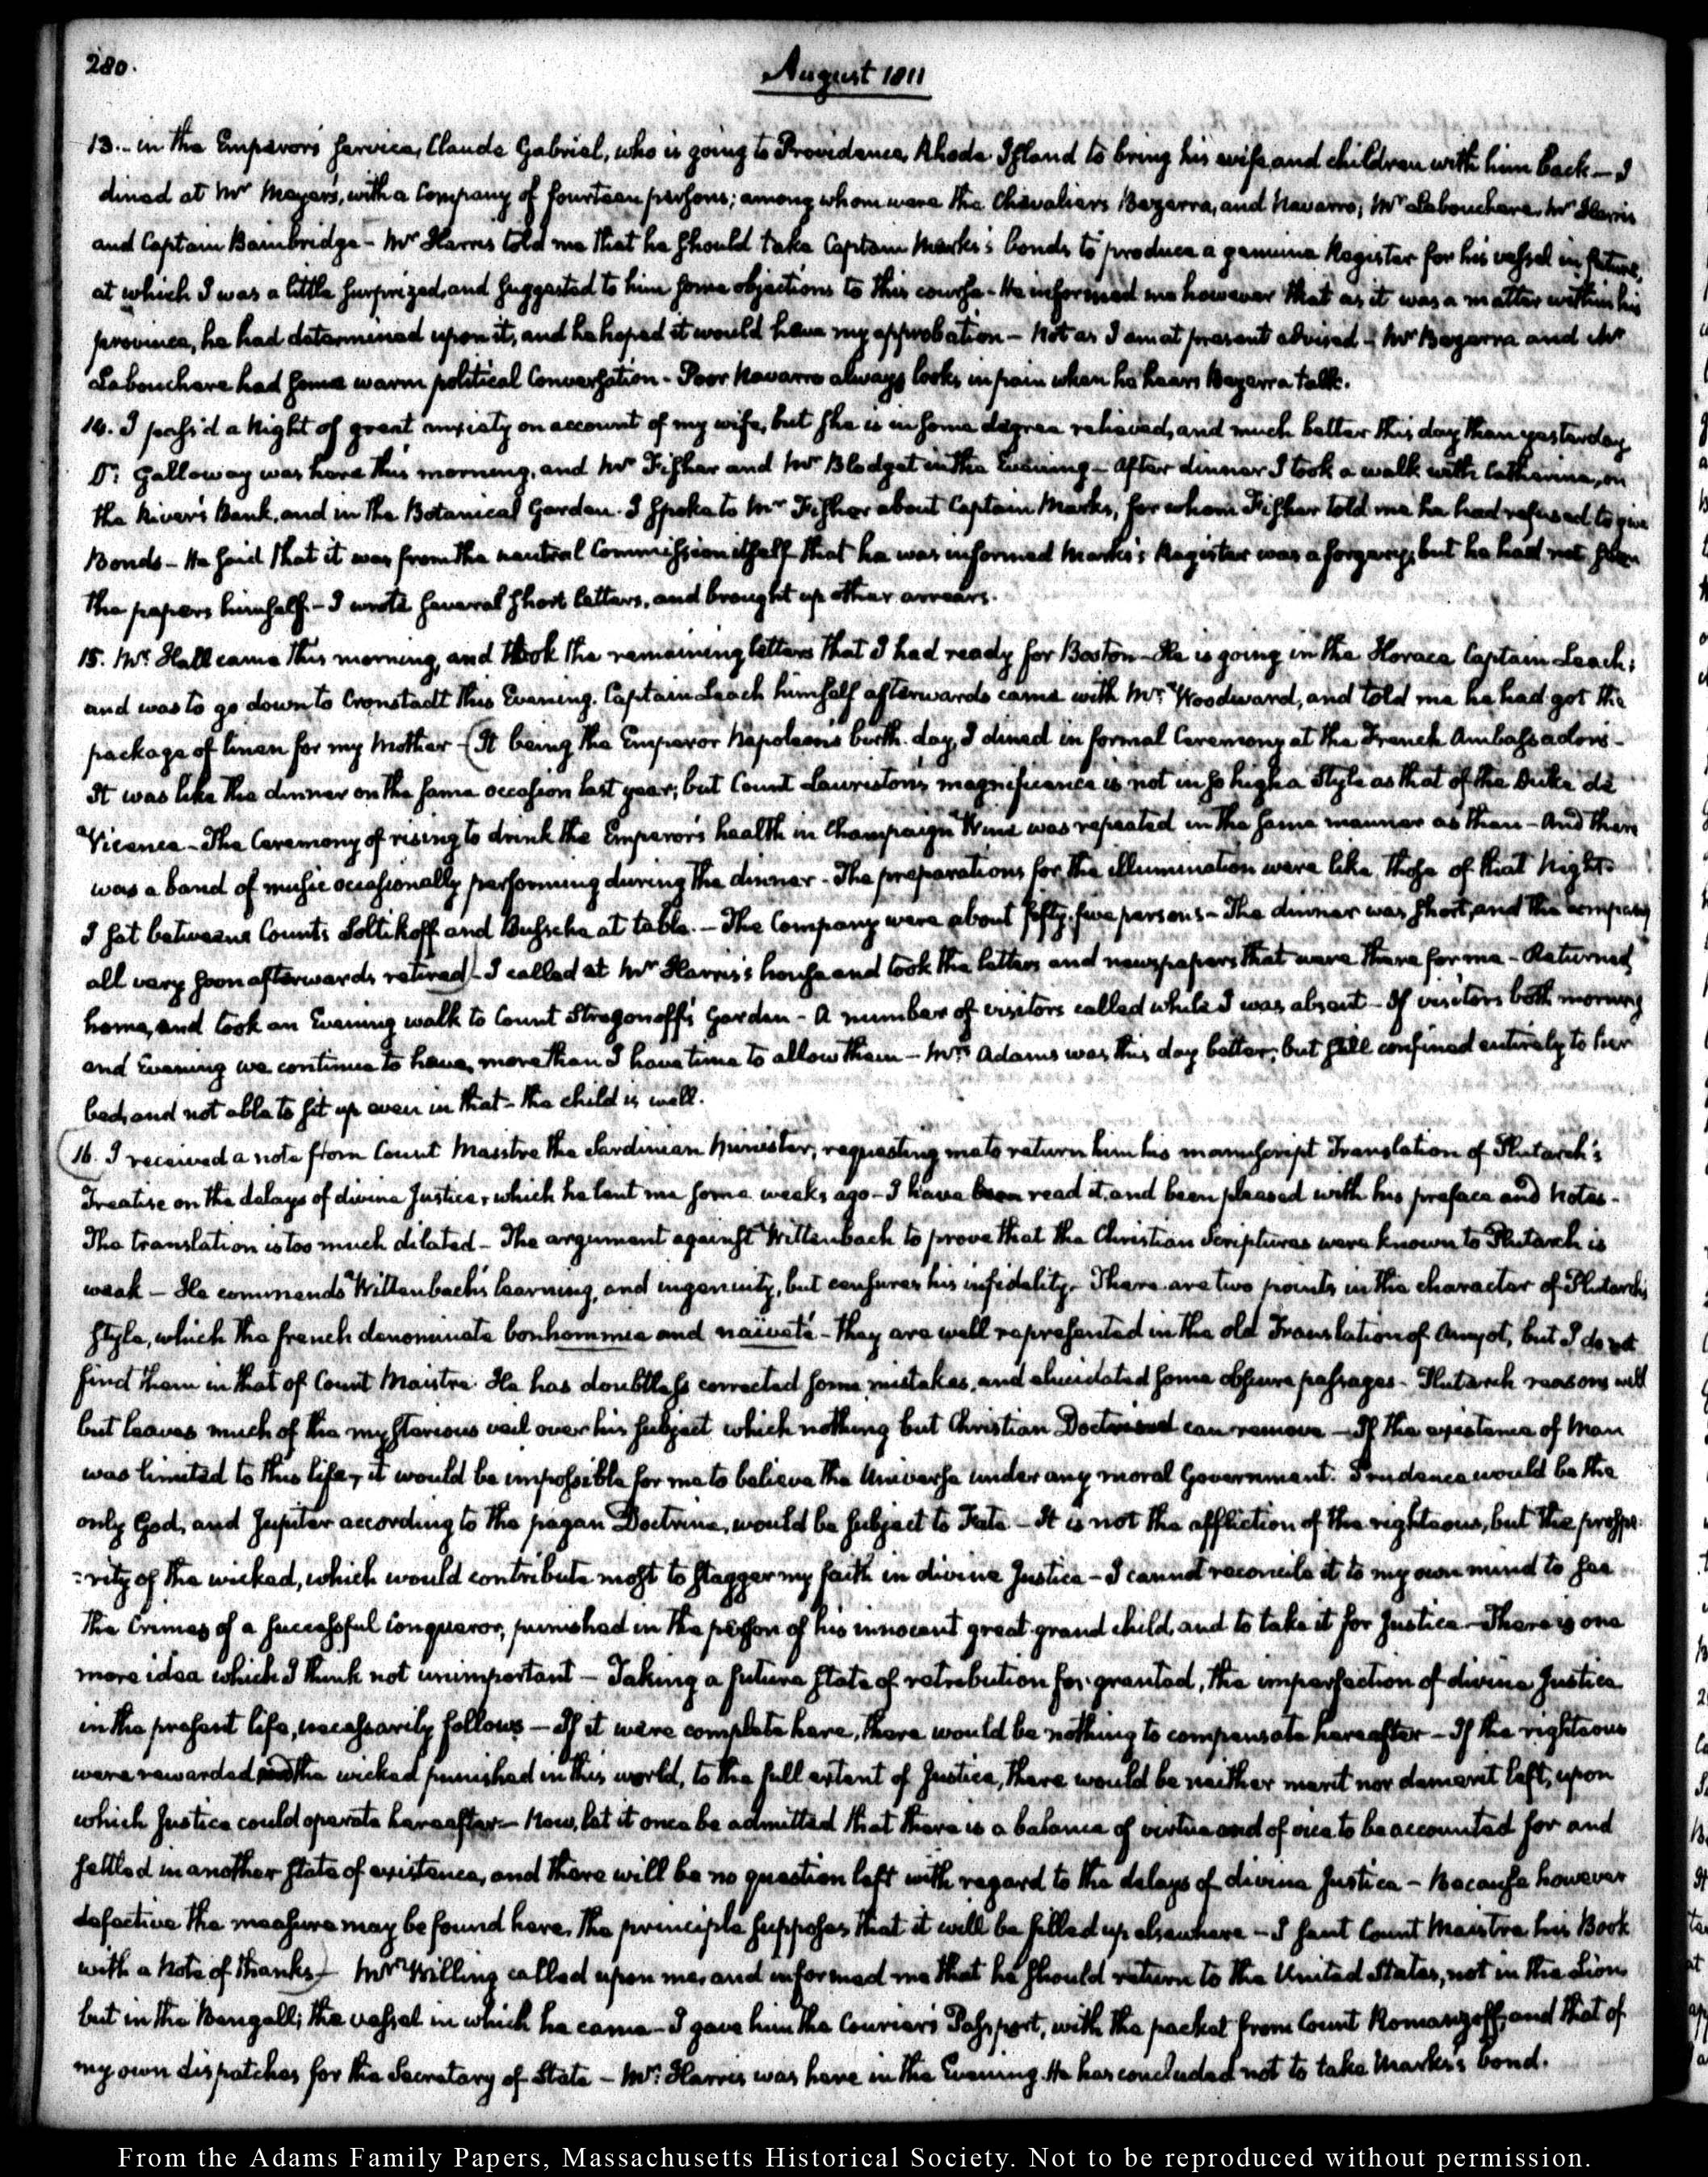 280.
August 1811
13.- in the Emperor's service, Claude Gabriel, who is going to Providence, Rhode Island to bring his wife and children with him back — I
dined at Mr Meyer's, with a Company of fourteen persons; among whom were the Chevaliers Bezerra, and Navarro; Mr Labouchere, Mr Harris
and Captain Bainbridge - Mr Harris told me that he should take Captain Marks's bonds to produce a genuine Register for his vessel in future,
at which I was a little surprized, and suggested to him some objections to this course - He informed me however that as it was a matter within his
province, he had determined upon it, and he hoped it would have my approbation - Not as I am at present advised - Mr Bezerra and Mr
Labouchere had some warm political Conversation - Poor Navarro always looks in pain when he hears Bezerra talk.
14. I pass'd a Night of great anxiety on account of my wife, but she is in some degree relieved, and much better this day than yesterday
Dr: Galloway was here this morning, and Mr Fisher and Mr Blodget in the Evening - After dinner I took a walk with Catherine, on
the River's Bank, and in the Botanical Garden. I spoke to Mr Fisher about Captain Marks, for whom Fisher told me he had refused to give
Bonds - He said that it was from the neutral Commission itself that he was informed Marks's Register was a forgery; but he had not seen
the papers himself - I wrote several short letters, and brought up other arrears.
15. Mr: Hall came this morning, and took the remaining letters that I had ready for Boston - He is going in the Horace Captain Leach;
and was to go down to Cronstadt this Evening. Captain Leach himself afterwards came with Mr: Woodward, and told me he had got the
package of linen for my Mother - (It being the Emperor Napoleon's birth-day, I dined in formal Ceremony at the French Ambassador's -
It was like the dinner on the same occasion last year; but Count Lauriston's magnificence is not in so high a Style as that of the Duke de
Vicence - The Ceremony of rising to drink the Emperor's health in Champaign Wine was repeated in the same manner as then - And there
was a band of music occasionally performing during the dinner - The preparations for the illumination were like those of that Night.
I sat between Counts Soltikoff and Bussche at table. - The Company were about fifty-five persons - The dinner was short, and the company
all very soon afterwards retired) - I called at Mr Harris's house and took the letters and newspapers that were there for me - Returned
home, and took an Evening walk to Count Strogonoff's Garden - A number of visitors called while I was absent - Of visitors both morning
and Evening we continue to have, more than I have time to allow them - Mrs Adams was this day better; but still confined entirely to her
bed, and not able to sit up even in that - the child is well.
(16. I received a note from Count Maistre the Sardinian Minister, requesting me to return him his manuscript Translation of Plutarch's
Treatise on the delays of divine Justice, which he lent me some weeks ago - I have read it, and been pleased with his preface and Notes -
The translation is too much dilated - The argument against Wittenbach to prove that the Christian Scriptures were known to Plutarch is
weak - He commends Wittenbach's learning, and ingenuity, but censures his infidelity - There are two points in the character of Plutarch's
style, which the french denominate bonhommie and naiveté - They are well represented in the old Translation of Amyot, but I do not
find them in that of Count Maistre. He has doubtless corrected some mistakes, and elucidated some obscure passages - Plutarch reasons well
but leaves much of the mysterious veil over his subject which nothing but Christian Doctrine can remove - If the existence of Man
was limited to this life, it would be impossible for me to believe the Universe under any moral Government. Prudence would be the
only God, and Jupiter according to the pagan Doctrine, would be subject to Fate - It is not the affliction of the righteous, but the prospe-
:rity of the wicked, which would contribute most to stagger my faith in divine Justice - I cannot reconcile it to my own mind to see
the Crimes of a successful Conqueror, punished in the person of his innocent great grand child, and to take it for Justice - There is one
more idea which I think not unimportant - Taking a future state of retribution for granted, the imperfection of divine Justice
in the present life, necessarily follows - If it were complete here, there would be nothing to compensate hereafter - If the righteous
were rewarded and the wicked punished in this world, to the full extent of Justice, there would be neither merit nor demerit left, upon
which Justice could operate hereafter - Now, let it once be admitted that there is a balance of virtue and of vice to be accounted for and
settled in another state of existence, and there will be no question left with regard to the delays of divine Justice - Because however
defective the measure may be found here, the principle supposes that it will be filled up elsewhere - I sent Count Maistre his Book
with a Note of thanks) - Mr Willing called upon me, and informed me that he should return to the United States, not in the Lion
but in the Bengall; the vessel in which he came - I gave him the Courier's Passport, with the packet from Count Romanzoff, and that of
my own dispatches for the Secretary of State - Mr: Harris was here in the Evening. He has concluded not to take Marks's bond.
From the Adams Family Papers, Massachusetts Historical Society. Not to be reproduced without permission.